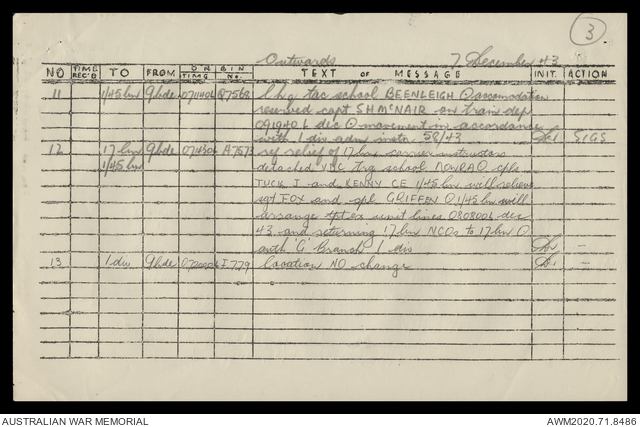 3
Outwards 7 December 43
NO TIME REC'D TO FROM ORIGIN TIME No. TEXT OF MESSAGE INIT. ACTION
11 1/45 bn 9 bde 071140k Q7568 l.h.q. tac school BEENLEIGH O accomodation
reserved capt SH McNAIR on train dep
091940k dec O movement in accordance
with 1 div adm instn 58/43 SIGS
12 17 bn 9 bde A7573 ref relief of 17 bn carrier instructors
1/45 bn detached VDC trg school NOWRA O cpls
TUCK J and KENNY CE 1/45 bn will relieve
sgt FOX and cpl GRIFFEN O 1/45 bn will
arrange tpt ex unit lines 080800k dec
43 and returning 17 bn NCOs to 17 bn O
auth 'G' Branch 1 div
13 1 div 9 bde I779 location NO change
AUSTRALIAN WAR MEMORIAL AWM2020.71.8486